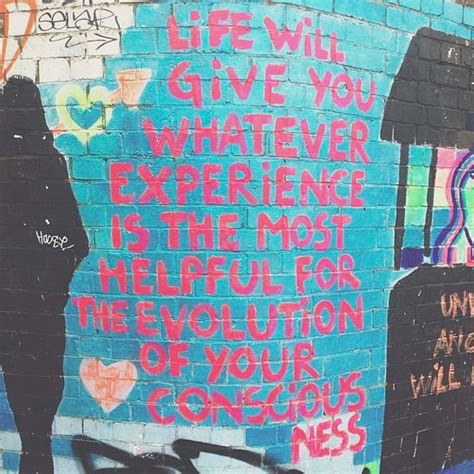 LiFE WiLL
GiVE YOU
WHATEVER
EXPERIENCE
IS THE MOST
HELPFUL FOR
THE EVOLUTION
OF YOUR
CONSCIOUS
NESS
WiLL